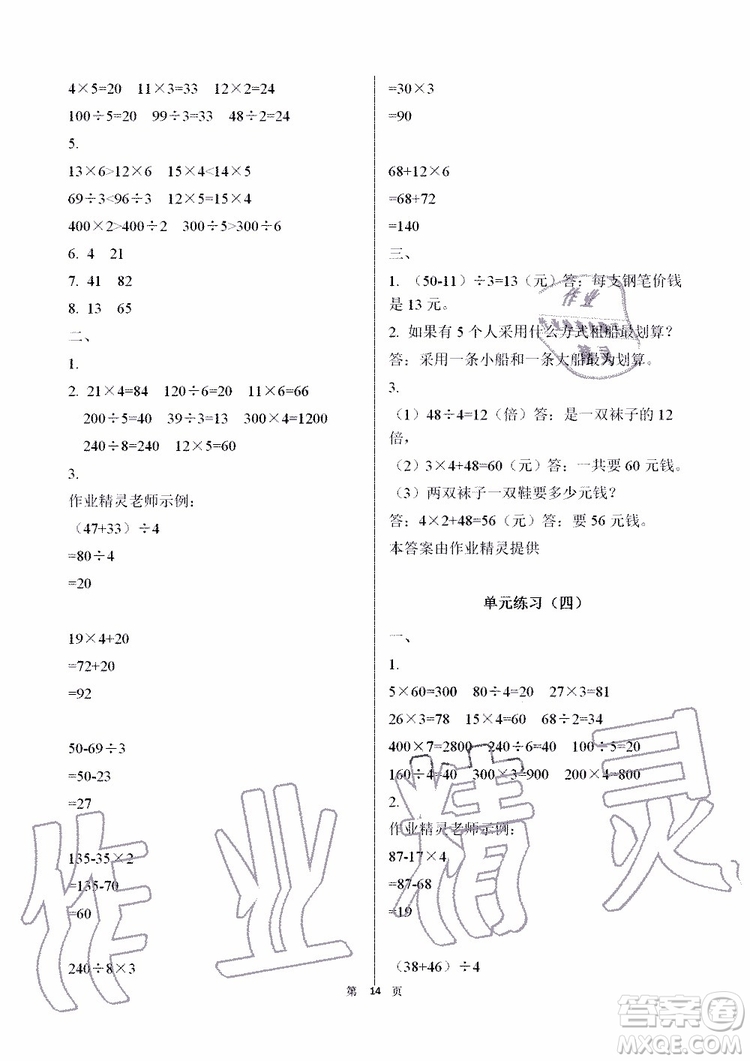 4×5=20 11×3=33 12×2=24
100÷5=20 99÷3=33 48÷2=24
5.
13×6>12×6 15×4<14×5
69÷3<96÷3 12×5=15×4
400×2>400÷2 300÷5>300÷6
6. 4 21
7. 41 82
8. 13 65
二、
1.
2. 21×4=84 120÷6=20 11×6=66
200÷5=40 39÷3=13 300×4=1200
240÷8=240 12×5=60
3.
作业精灵老师示例：
（47+33）÷4
=80÷4
=20
19×4+20
=72+20
=92
50-69÷3
=50-23
=27
135-35×2
=135-70
=60
240÷8×3
=30×3
=90
68+12×6
=68+72
=140
三、
1. （50-11）÷3=13（元）答：每支钢笔价钱
是 13 元。
2. 如果有 5 个人采用什么方式租船最划算？
答：采用一条小船和一条大船最为划算。
3.
（1）48÷4=12（倍）答：是一双袜子的 12
倍，
（2）3×4+48=60（元）答：一共要 60 元钱。
（3）两双袜子一双鞋要多少元钱？
答：4×2+48=56（元）答：要 56 元钱。
本答案由作业精灵提供
单元练习（四）
一、
1.
5×60=300 80÷4=20 27×3=81
26×3=78 15×4=60 68÷2=34
400×7=2800 240÷6=40 100÷5=20
160÷4=40 300×3=900 200×4=800
2.
作业精灵老师示例：
87-17×4
=87-68
=19
（38+46）÷4
第 14 页
作业精灵
作业
精灵
答案圈
MXQE.COM